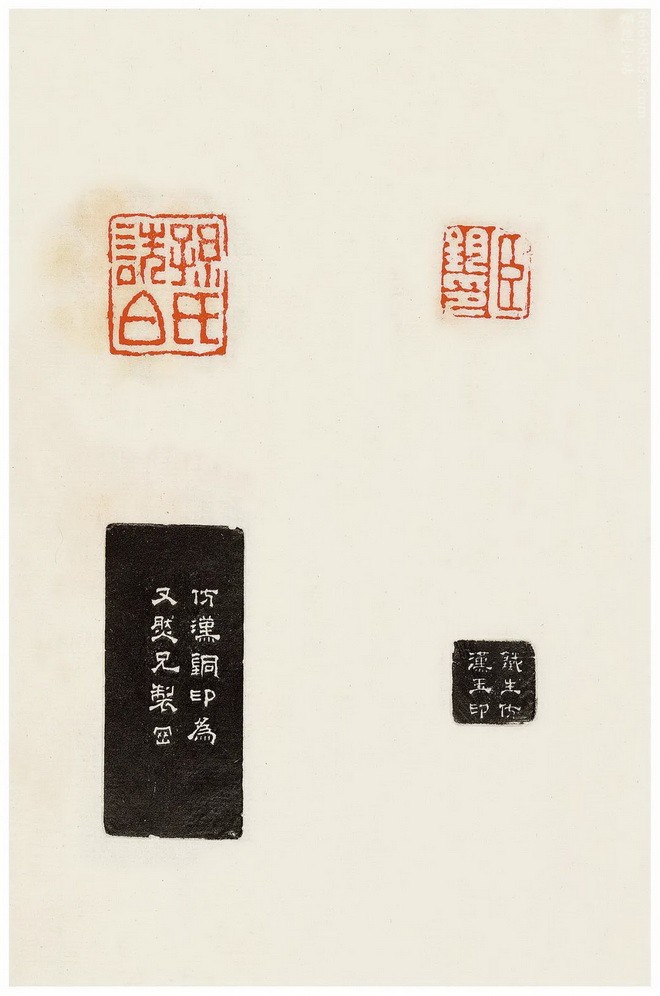 臣
印
鐵生仿
漢玉印
孫氏
詵白
仿漢銅印為
又然兄製岡